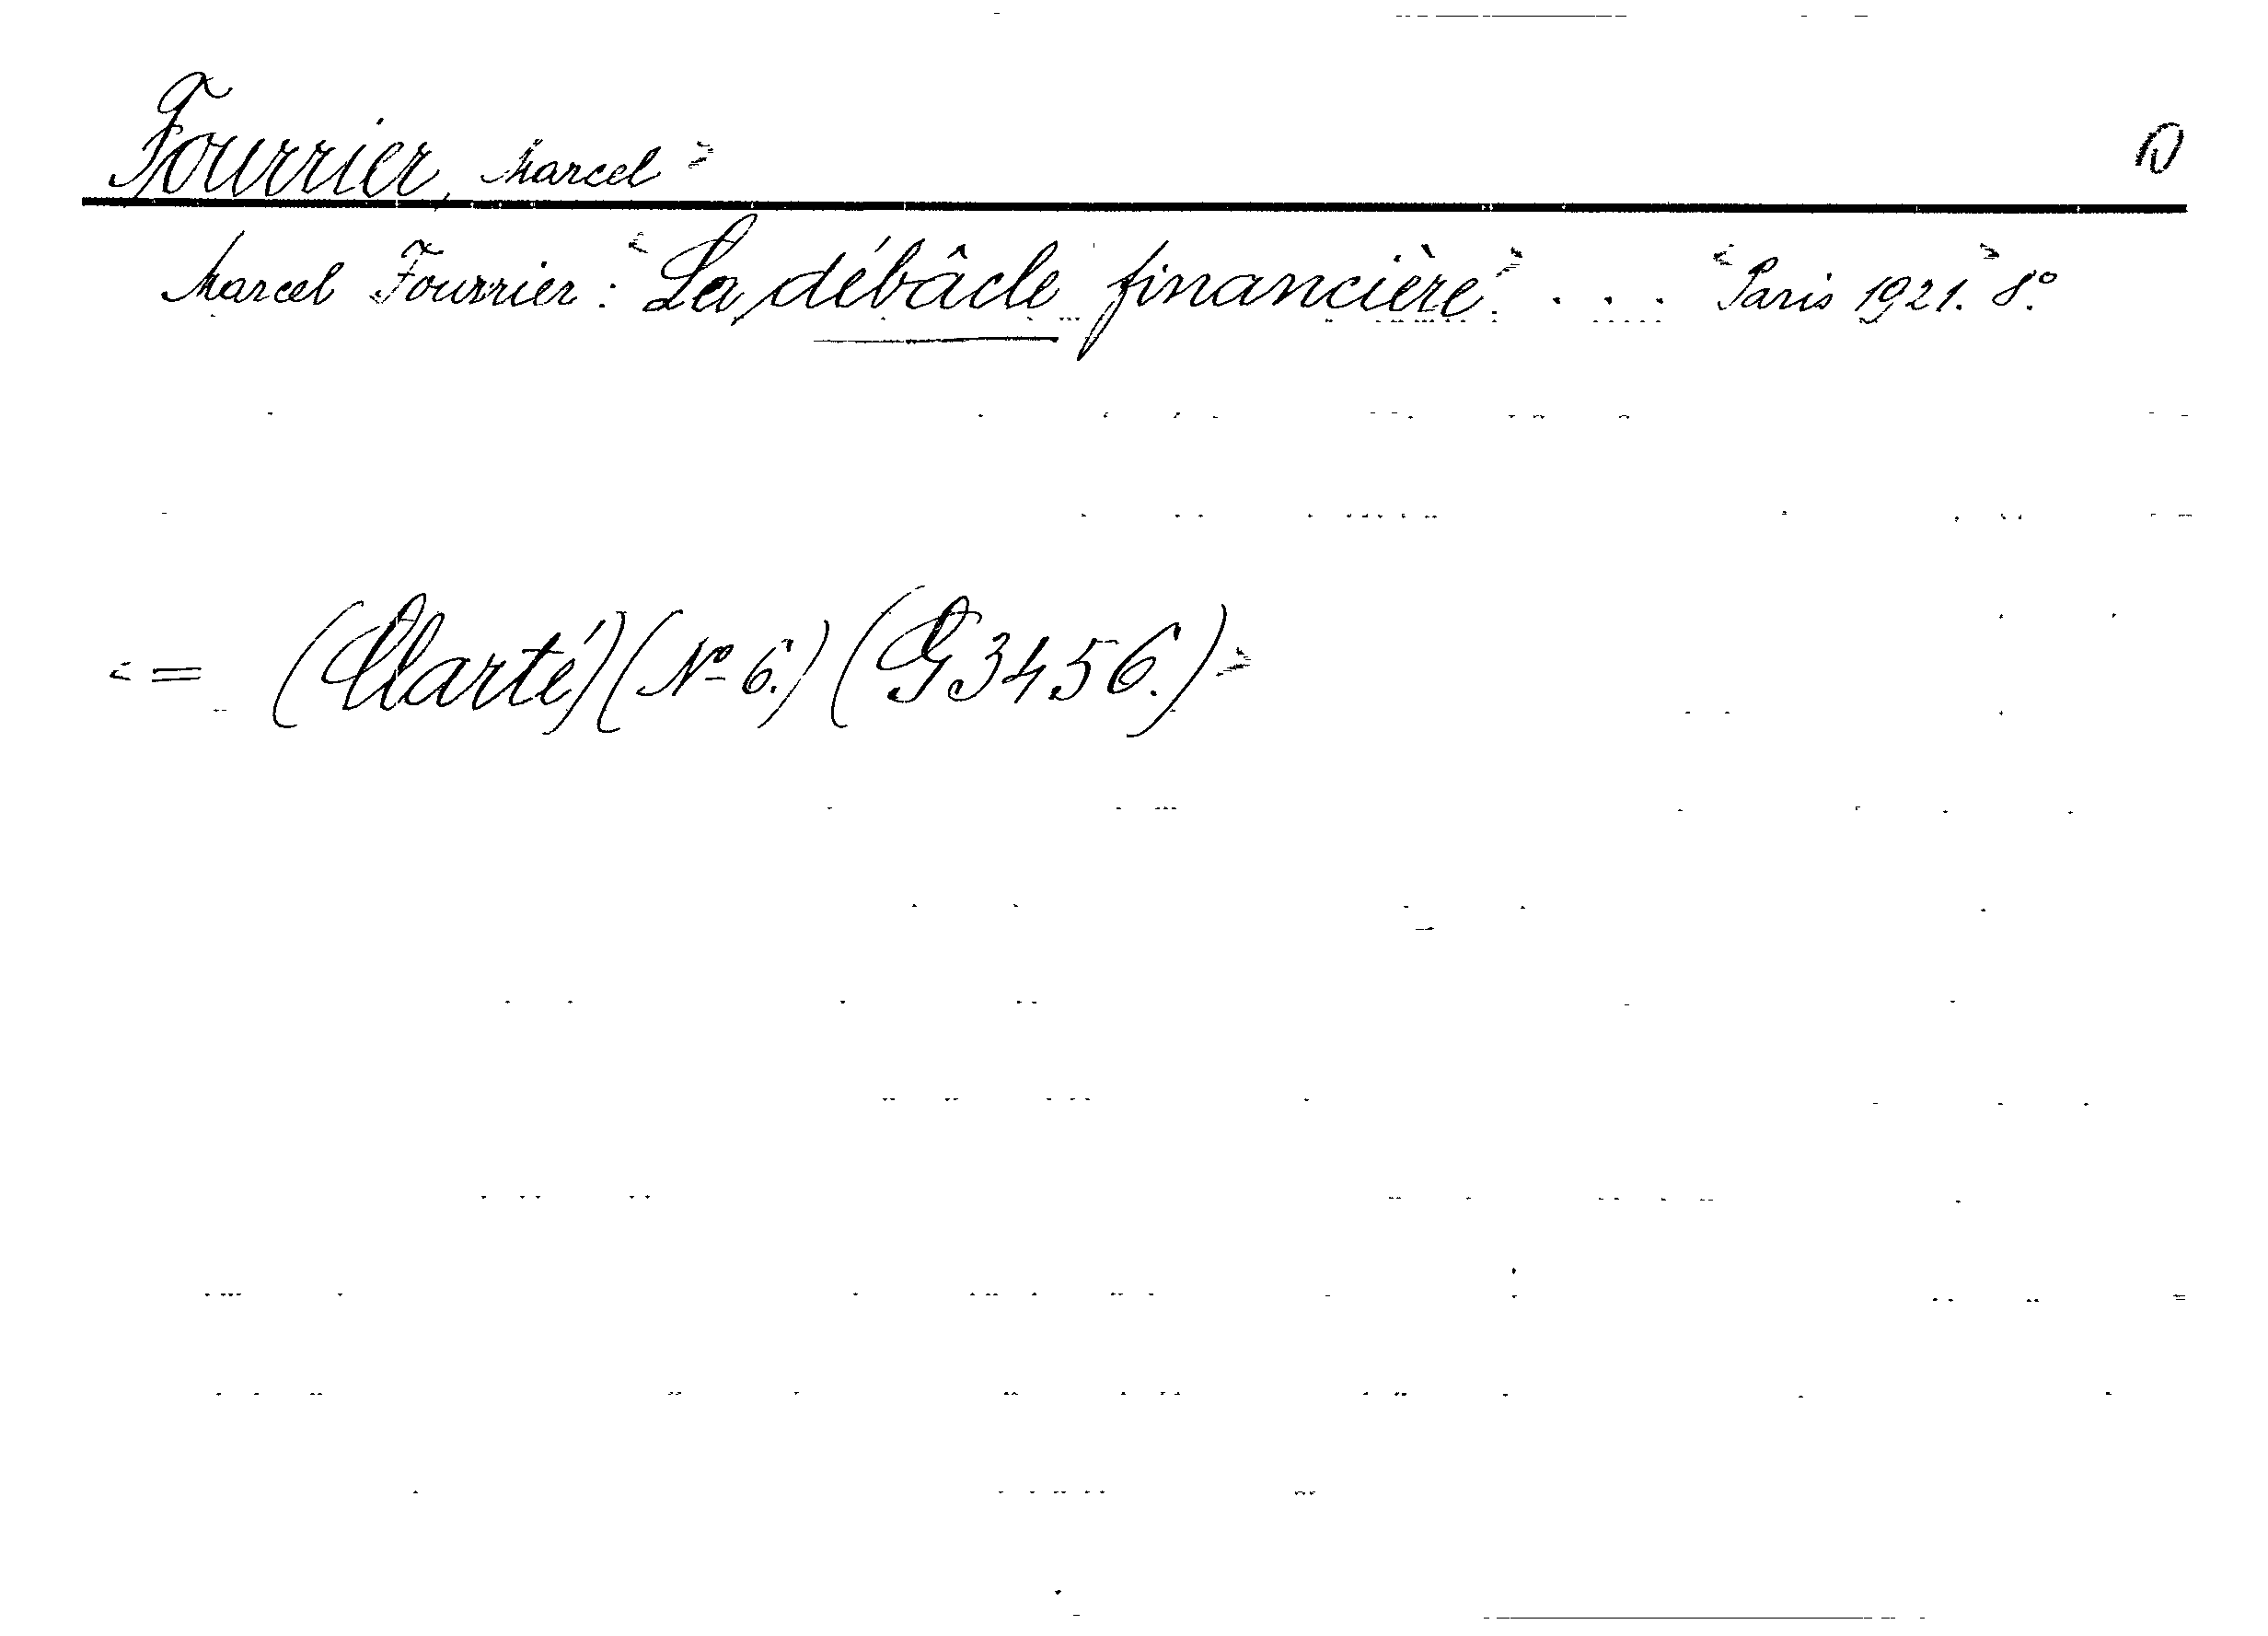 Fourrier, Marcel > D
Marcel Fourrier: < La débâcle financière. > . . . < Paris 1921. > 8º.
< = (Clarté) (Nº 6.) (G 3456.) >